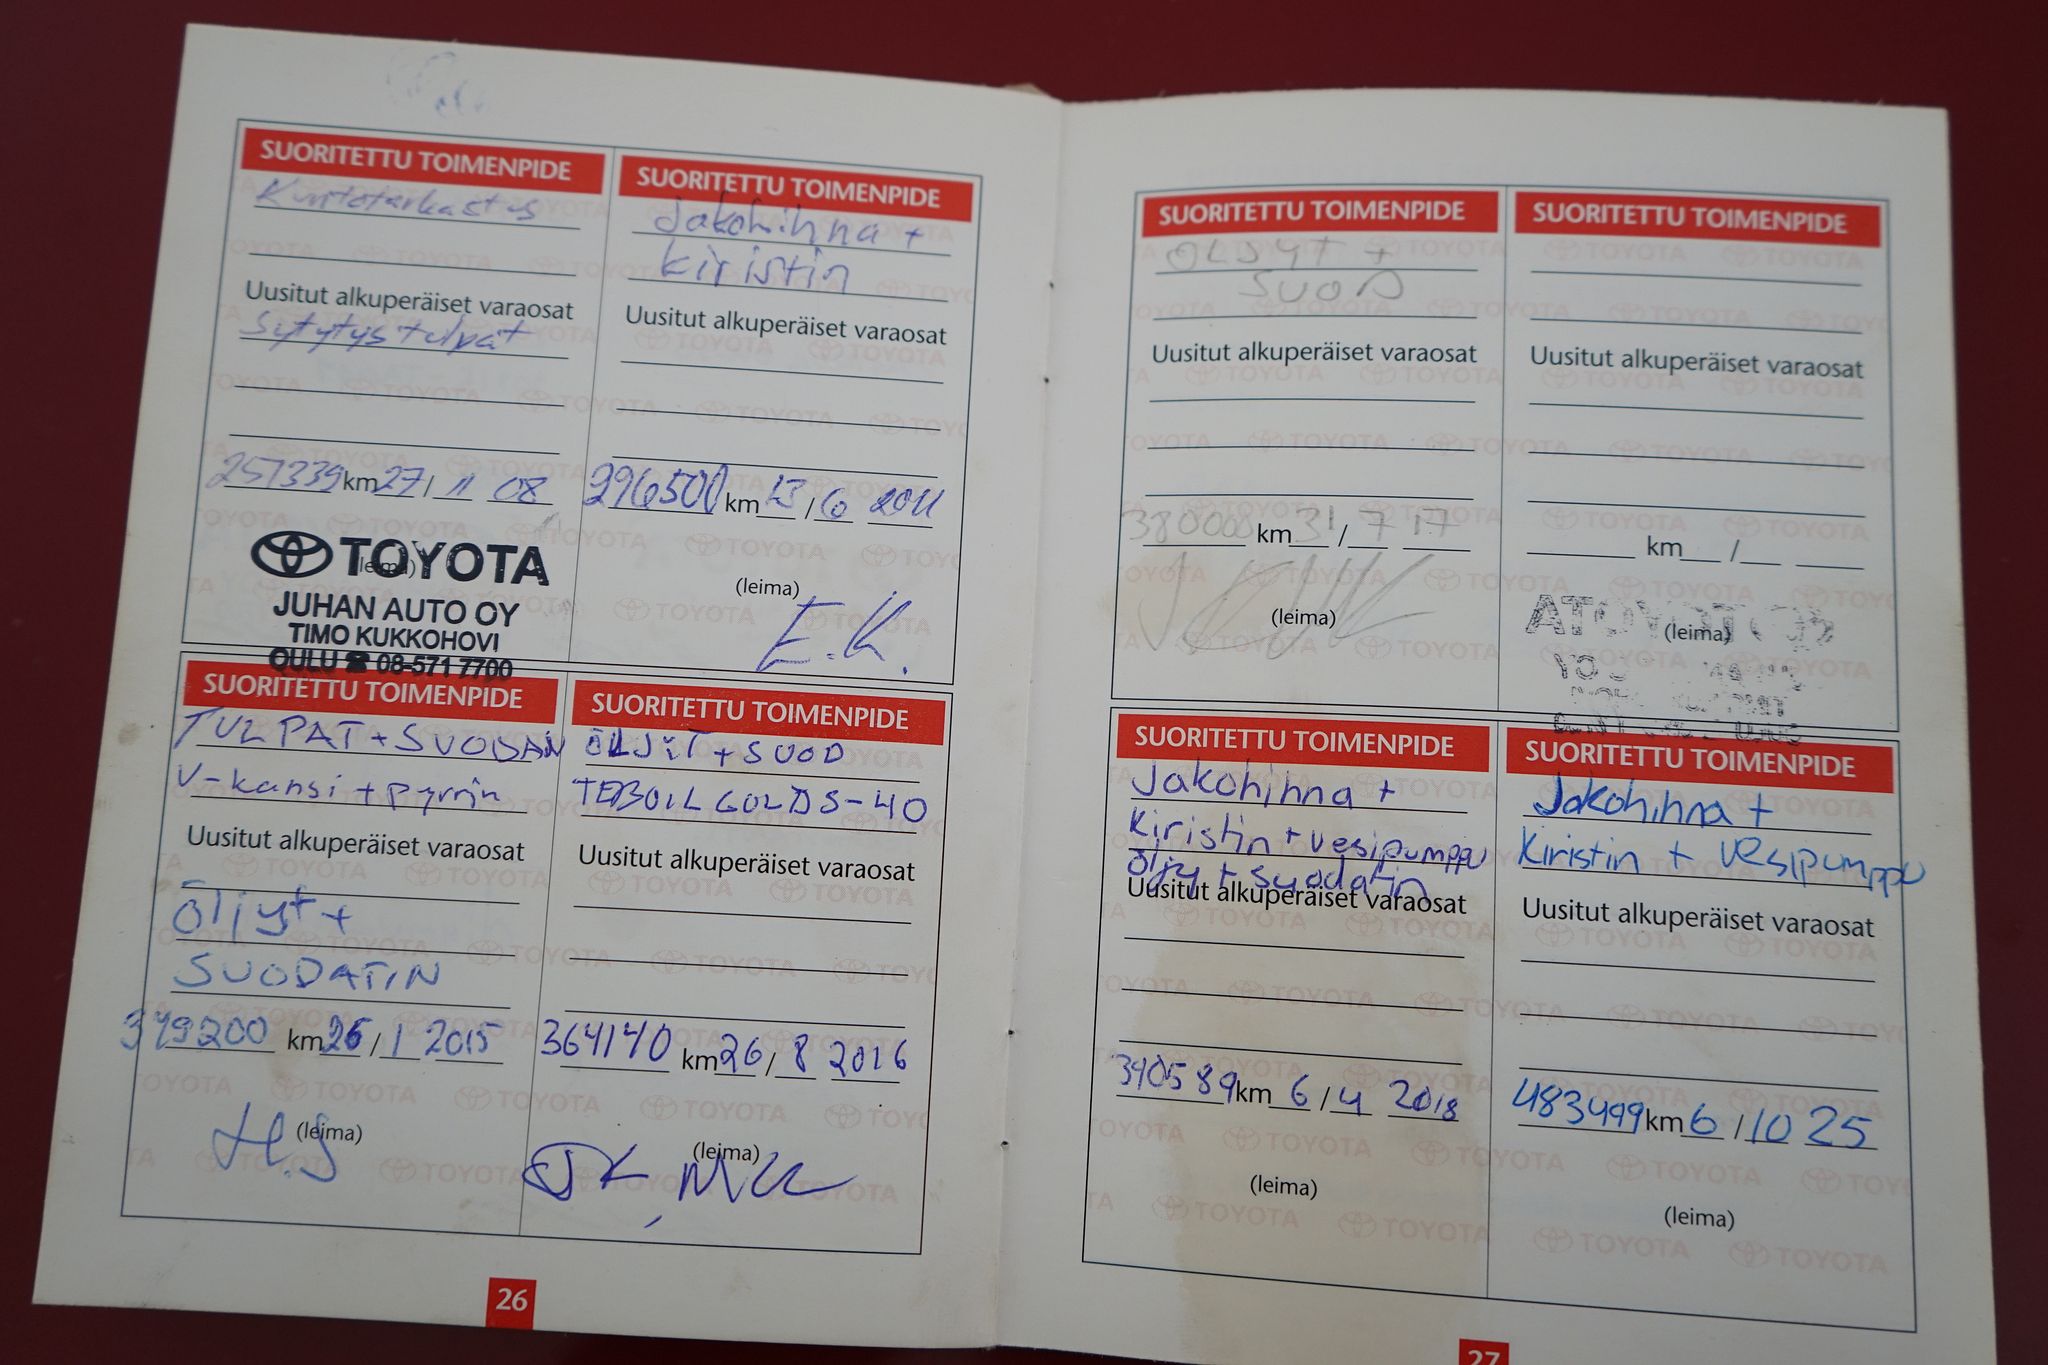 SUORITETTU TOIMENPIDE
Kuntotarkastus
Uusitut alkuperäiset varaosat
Sytytystulpat
257339 km 27/11 08
(leima)
TOYOTA
JUHAN AUTO OY
TIMO KUKKOHOVI
OULU ☎ 08-571 7700
SUORITETTU TOIMENPIDE
Jakohihna +
kiristin
Uusitut alkuperäiset varaosat
296500 km 13/6 2011
(leima)
E.K.
SUORITETTU TOIMENPIDE
TULPAT + SUODAN
V-kansi + pyrrin
Uusitut alkuperäiset varaosat
Öljyt +
SUODATIN
349200 km 26/1 2015
(leima)
H.S
SUORITETTU TOIMENPIDE
ÖLJIT + SUOD
TEBOIL GOLD S-40
Uusitut alkuperäiset varaosat
364140 km 26/8 2016
(leima)
26
SUORITETTU TOIMENPIDE
OLJYT +
SUOD
Uusitut alkuperäiset varaosat
380000 km 31/7 17
(leima)
SUORITETTU TOIMENPIDE
Uusitut alkuperäiset varaosat
km /
(leima)
SUORITETTU TOIMENPIDE
Jakohihna +
Kiristin + vesipumppu
Öljy + suodatin
Uusitut alkuperäiset varaosat
390589 km 6/4 2018
(leima)
SUORITETTU TOIMENPIDE
Jakohihna +
Kiristin + vesipumppu
Uusitut alkuperäiset varaosat
483499 km 6/10 25
(leima)
27